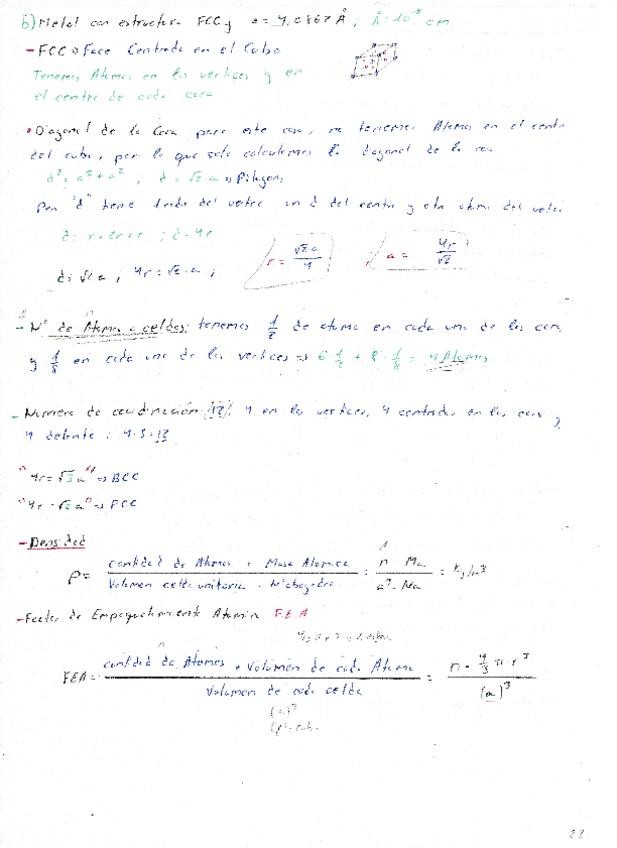 b) Metal con estructura FCC y a = 4,0867 Å ; Å = 10⁻⁸ cm
- FCC → Face Centrada en el Cubo
Tenemos Atomos en los vertices y en
el centro de cada cara
• Diagonal de la Cara para este caso, no tenemos Atomos en el centro
del cubo, por lo que solo calculamos la diagonal de la cara
d² = a² + a² ; d = √2·a → Pitagoras
Pero "d" tiene del del centro y otro atomo del
d = r + 2r + r ; d = 4r
d = √2 a , 4r = √2·a ; r = √2 a / 4 , a = 4r / √2
- Nº de Atomos celdas: tenemos 1/2 de atomo en cada una de las caras
y 1/8 en cada uno de los vertices ⇒ 6·1/2 + 8·1/8 = 4 Atomos
- Numero de coordinación (12) 4 en los vertices, 4 centrados en las caras y
4 delante : 4·3 = 12
"4r = √3 a" ⇒ BCC
"4r = √2 a" ⇒ FCC
- Densidad
ρ = Cantidad de Atomos · Masa Atomica / Volumen celda unitaria · Nº Abogadro = n · Ma / a³ · Na = Kg/m³
- Factor de Empaquetamiento Atomico F.E.A
FEA = cantidad de Atomos · Volumen de cada Atomo / Volumen de cada celda = n · 4/3 π · r³ / (a)³
(a)³
22